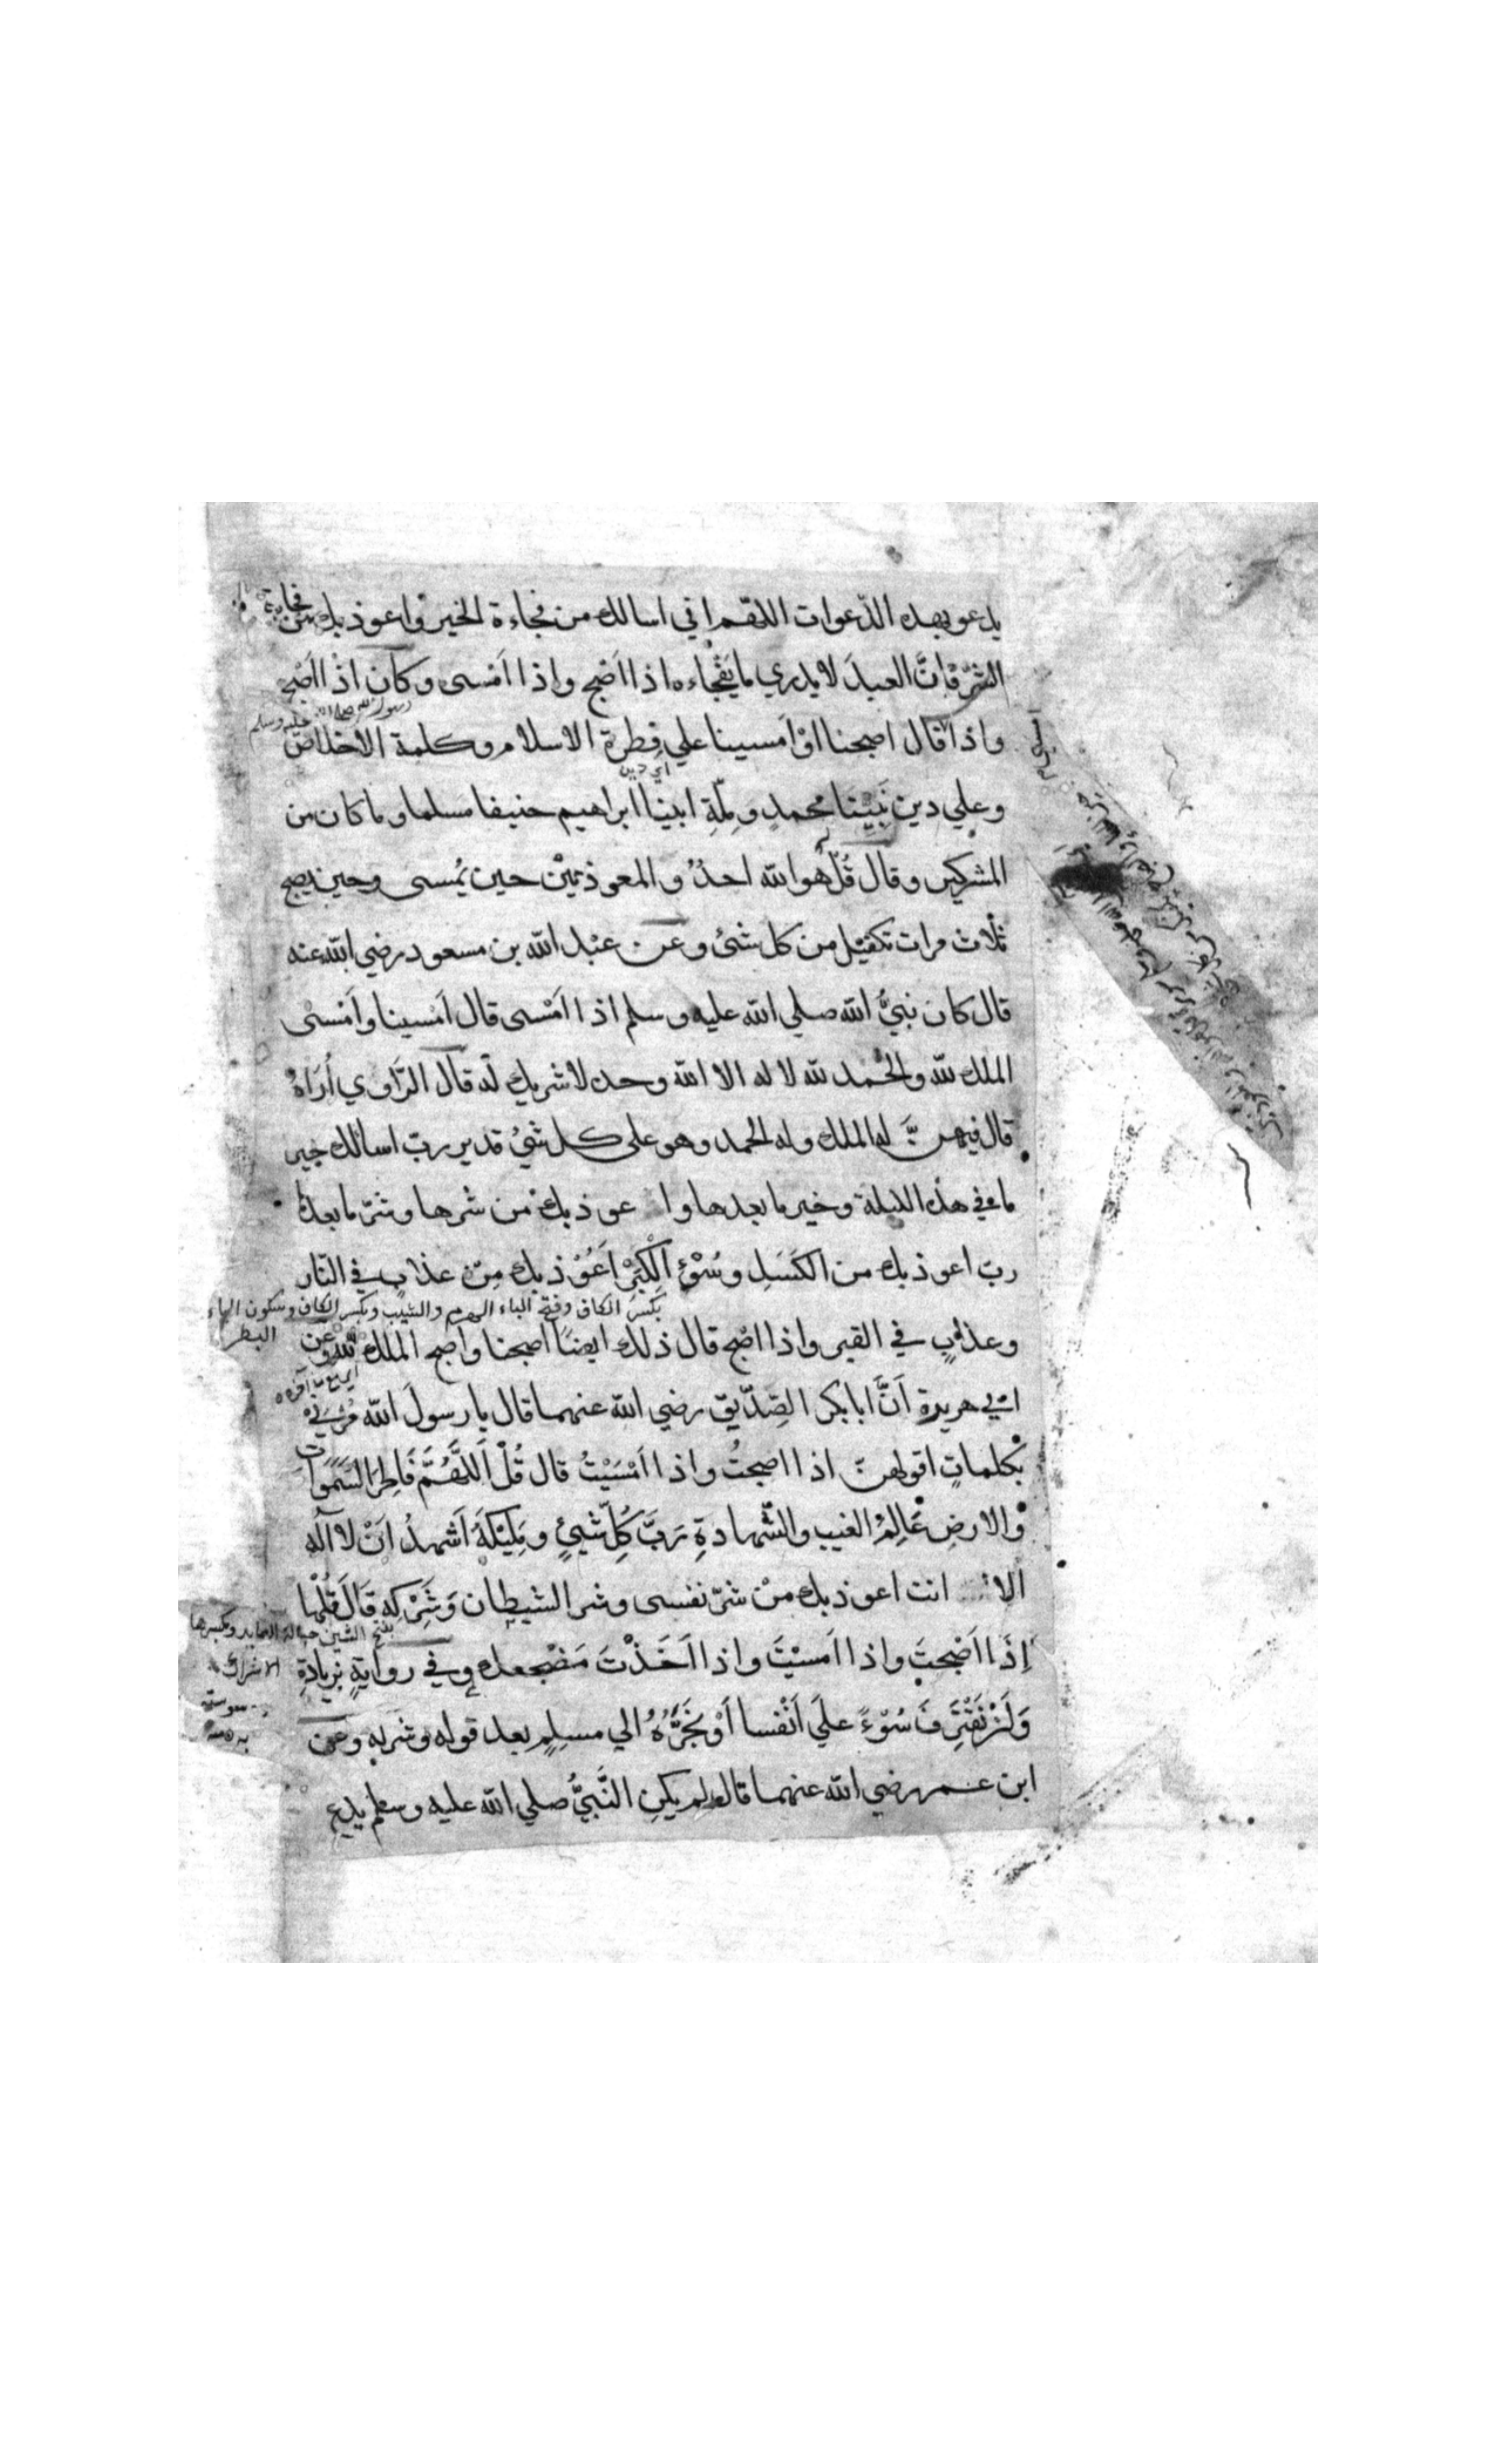 يدعو بهذه الدّعوات اللّهم اني اسالك من فجاءة الخير واعوذ بك من فجاءة
الشّرّ فانَّ العبدَ لا يدري ما يَفْجاءه اذا اَصْبح واذا اَمْسى وكان اذا اَصْبح
رسول الله صلى الله عليه وسلم
واذا قال اصبحنا اوْ اَمسينا علي فِطرة الاسلام وكلمة الاخلاص
اي دين
وعلي دين نَبِيّنَا محمدٍ ومِلّةِ ابينا ابراهيم حنيفا مسلما وما كان من
المشركين وقال قُلْ هو الله احدٌ والمعوذتيْن حين يُمسى وحين يصبح
ثلٰاث مرات تكفيْك من كل شئ وعن عبْد الله بن مسعود رضي الله عنه
قال كان نبيُّ الله صلي الله عليه وسلم اذا اَمْسى قال اَمْسينا واَمْسٰى
الملك لله والحْمد لله لا اله الا الله وحده لا شريك له قال الرَّاوي اُرَاهُ
قال فيهنَّ له الملك وله الحمد وهو على كل شيْئ قدير ربّ اسالك خير
ما في هذه الليلة وخير ما بعدها واعوذ بك من شرها وشرّ ما بعدها
ربّ اعوذ بك من الكَسَلِ وسُوْءِ الْكِبَرِ اَعُوْذ بك مِنْ عذابٍ في النّار
بكسر الكاف وفتح الباء الهرم والشيب وبكسر الكاف وسكون الباء
البطر
وعذابٍ في القبر واذا اصْبح قال ذلك ايضًا اصبحنا واصبح الملك لله وعن
ابي هريرة اَنَّ ابا بكر الصِّدّيق رضي الله عنهما قال يا رسولَ الله مُرْنِيْ
بكلماتٍ اقولهنّ اذا اصبحتُ واذا اَمْسَيْتُ قال قُلْ اَللّٰهُمَّ فَاطِرَ السَّمٰوَات
والارضِ عَالِمَ الغيب والشَّهادةِ رَبَّ كُلِّ شَيْئٍ ومَلِيْكَهُ اَشهدُ اَنْ لا اله
الا انت اعوذ بك منْ شرّ نفسى وشر الشيطان وَشَِرْكِه قَالَ قُلْها
بفتح الشين حبالة المصايد وبكسرها
الاشراك
اِذَا اَصْبحتَ واذا امسيْتَ واذا اَخَذْتَ مَضْجعك وفي روايةٍ بزيادةِ
وَاَنْ نَقْتَرِفَ سُوْءً علَي اَنْفسنا اَوْ نَجُرَّهُ الي مسلِمٍ بعد قوله وشركه وعن
ابن عمر رضي الله عنهما قال لم يكنِ النَّبيُّ صلي الله عليه وسلم يدع